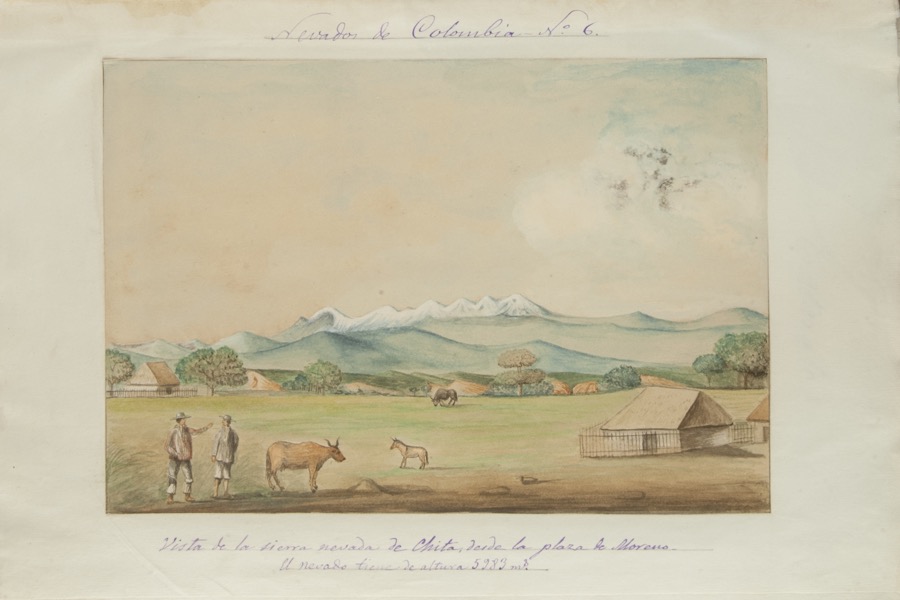 Nevados de Colombia Nº 6.
Vista de la sierra nevada de Chita, desde la plaza de Moreno.
El nevado tiene de altura 5983 mts.